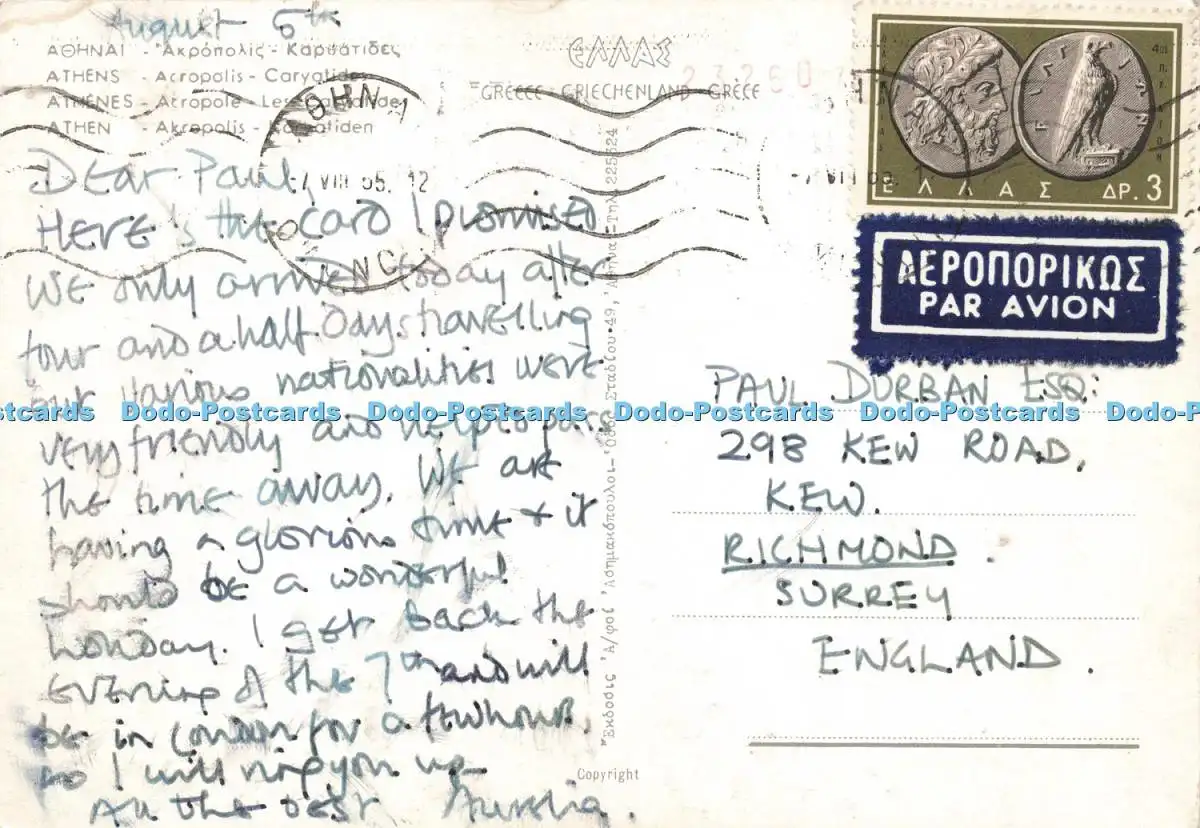 August 5th
ΑΘΗΝΑΙ - Ἀκρόπολις - Καρυάτιδες
ATHENS - Acropolis - Caryatides
ATHÈNES - Acropole - Les Caryatides
ATHEN - Akropolis - Karyatiden
ΕΛΛΑΣ
GREECE - GRIECHENLAND - GRÈCE
23260
ΕΛΛΑΣ ΔΡ. 3
ΑΕΡΟΠΟΡΙΚΩΣ
PAR AVION
7 VIII 65. 12
Dear Paul,
Here's the card I promised
We only arrived today after
four and a half days travelling
our various nationalities were
very friendly and helped to pass
the time away. We are
having a glorious time & it
should be a wonderful
holiday. I get back the
evening of the 7th and will
be in London for a few hours,
so I will ring you up
All the best
PAUL DURBAN ESQ:
298 KEW ROAD,
KEW.
RICHMOND.
SURREY
ENGLAND.
Ἔκδοσις Ἀ/φοὶ Ἀσημακόπουλοι-Ὁδὸς Σταδίου 49, Ἀθῆναι-Τηλ. 225624
Copyright
Dodo-Postcards Dodo-Postcards Dodo-Postcards Dodo-Postcards